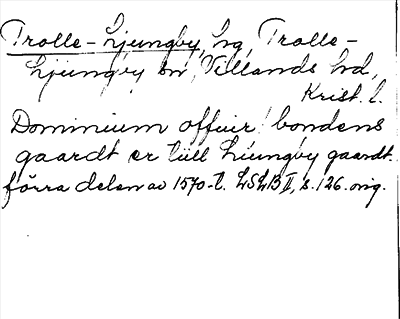 Trolle-Ljungby, hg, Trolle-
Ljungby sn, Villands hd,
Krist. l.
Dominium offuir bondens
gaardt er till Liungby gaardt.
förra delen av 1570-t. LSLB II, s. 126. orig.